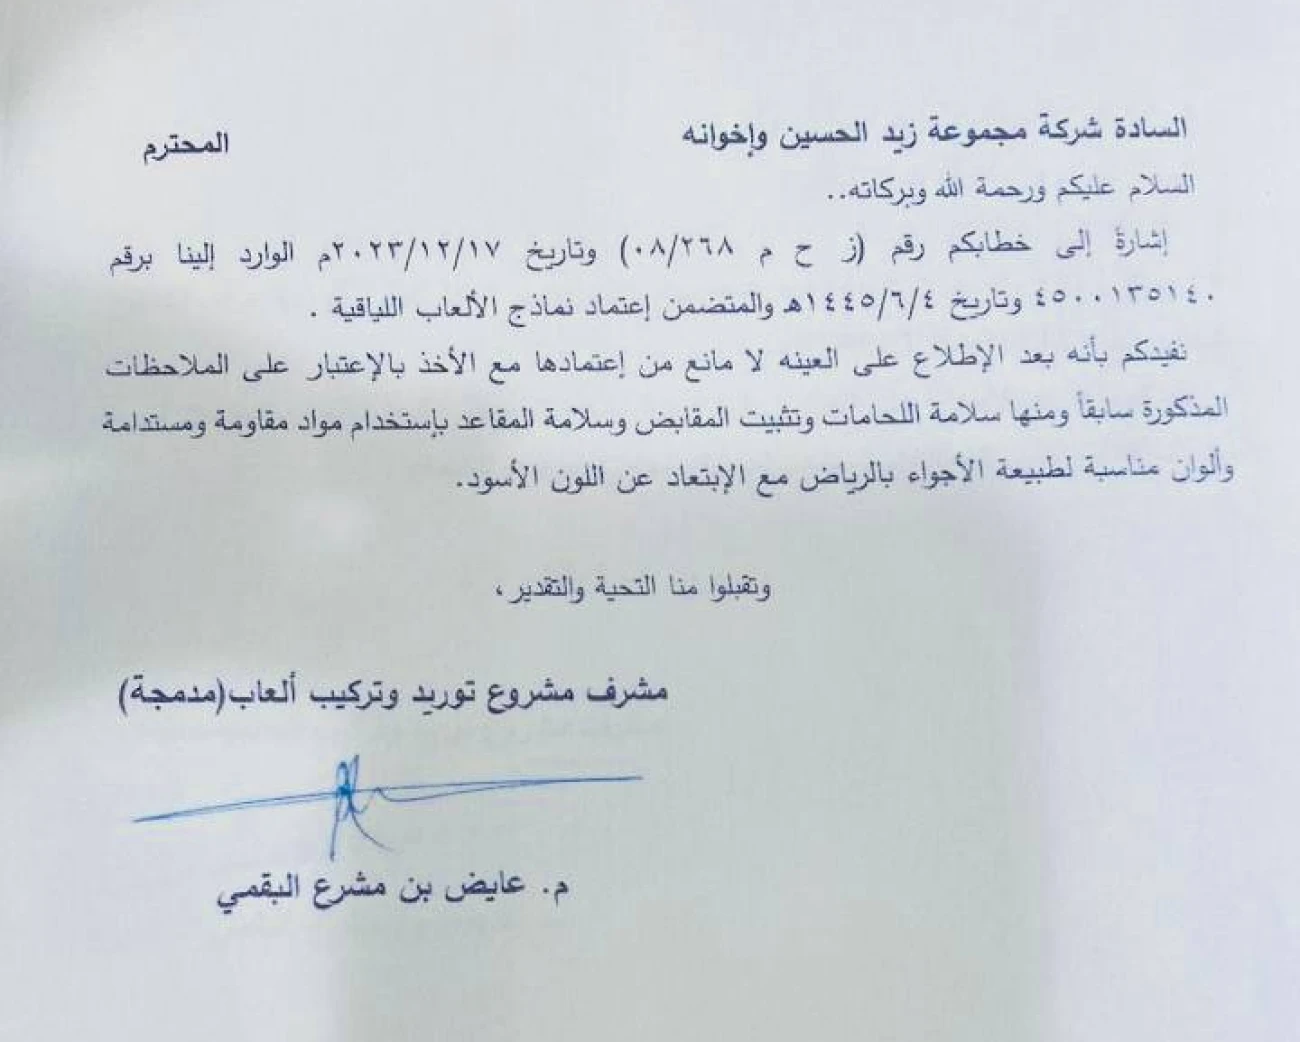 السادة شركة مجموعة زيد الحسين وإخوانه المحترم
السلام عليكم ورحمة الله وبركاته..
إشارةً إلى خطابكم رقم (ز ح م ٠٨/٢٦٨) وتاريخ ٢٠٢٣/١٢/١٧م الوارد إلينا برقم
٤٥٠٠١٣٥١٤٠ وتاريخ ١٤٤٥/٦/٤هـ والمتضمن إعتماد نماذج الألعاب اللياقية .
نفيدكم بأنه بعد الإطلاع على العينه لا مانع من إعتمادها مع الأخذ بالإعتبار على الملاحظات
المذكورة سابقاً ومنها سلامة اللحامات وتثبيت المقابض وسلامة المقاعد بإستخدام مواد مقاومة ومستدامة
وألوان مناسبة لطبيعة الأجواء بالرياض مع الإبتعاد عن اللون الأسود.
وتقبلوا منا التحية والتقدير ،
مشرف مشروع توريد وتركيب ألعاب(مدمجة)
م. عايض بن مشرع البقمي